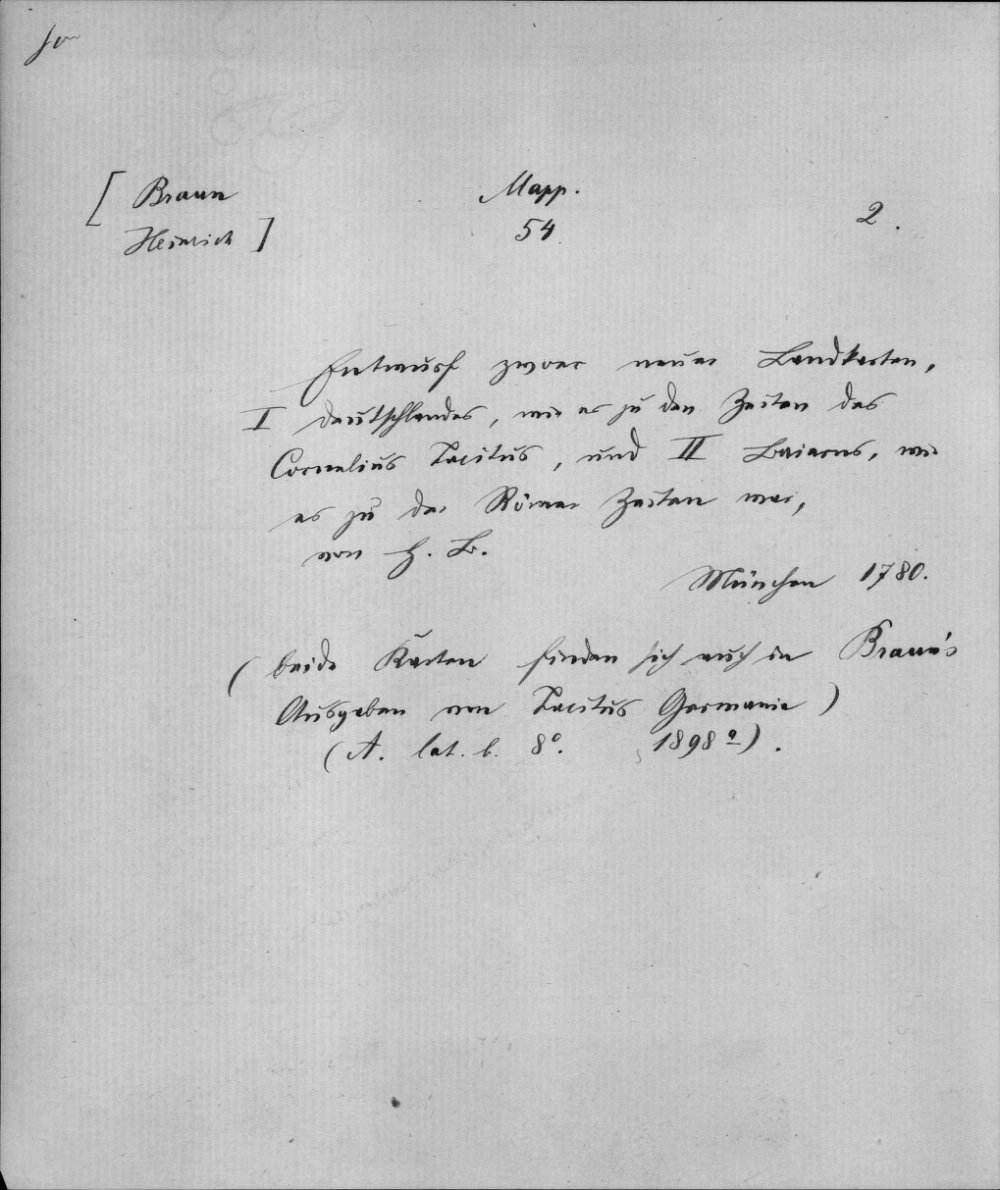 [ Braun Mapp. 2.
Heinrich ] 54
Entwurf zwoer neuer Landkarten,
I Deutschlandes, wie es zu den Zeiten des
Cornelius Tacitus, und II Baierns, wie
es zu der Römer Zeiten war,
von H. B.
München 1780.
( beide Karten finden sich auch in Braun's
Ausgaben von Tacitus Germania )
(A. lat. b. 8°. 1898 a).